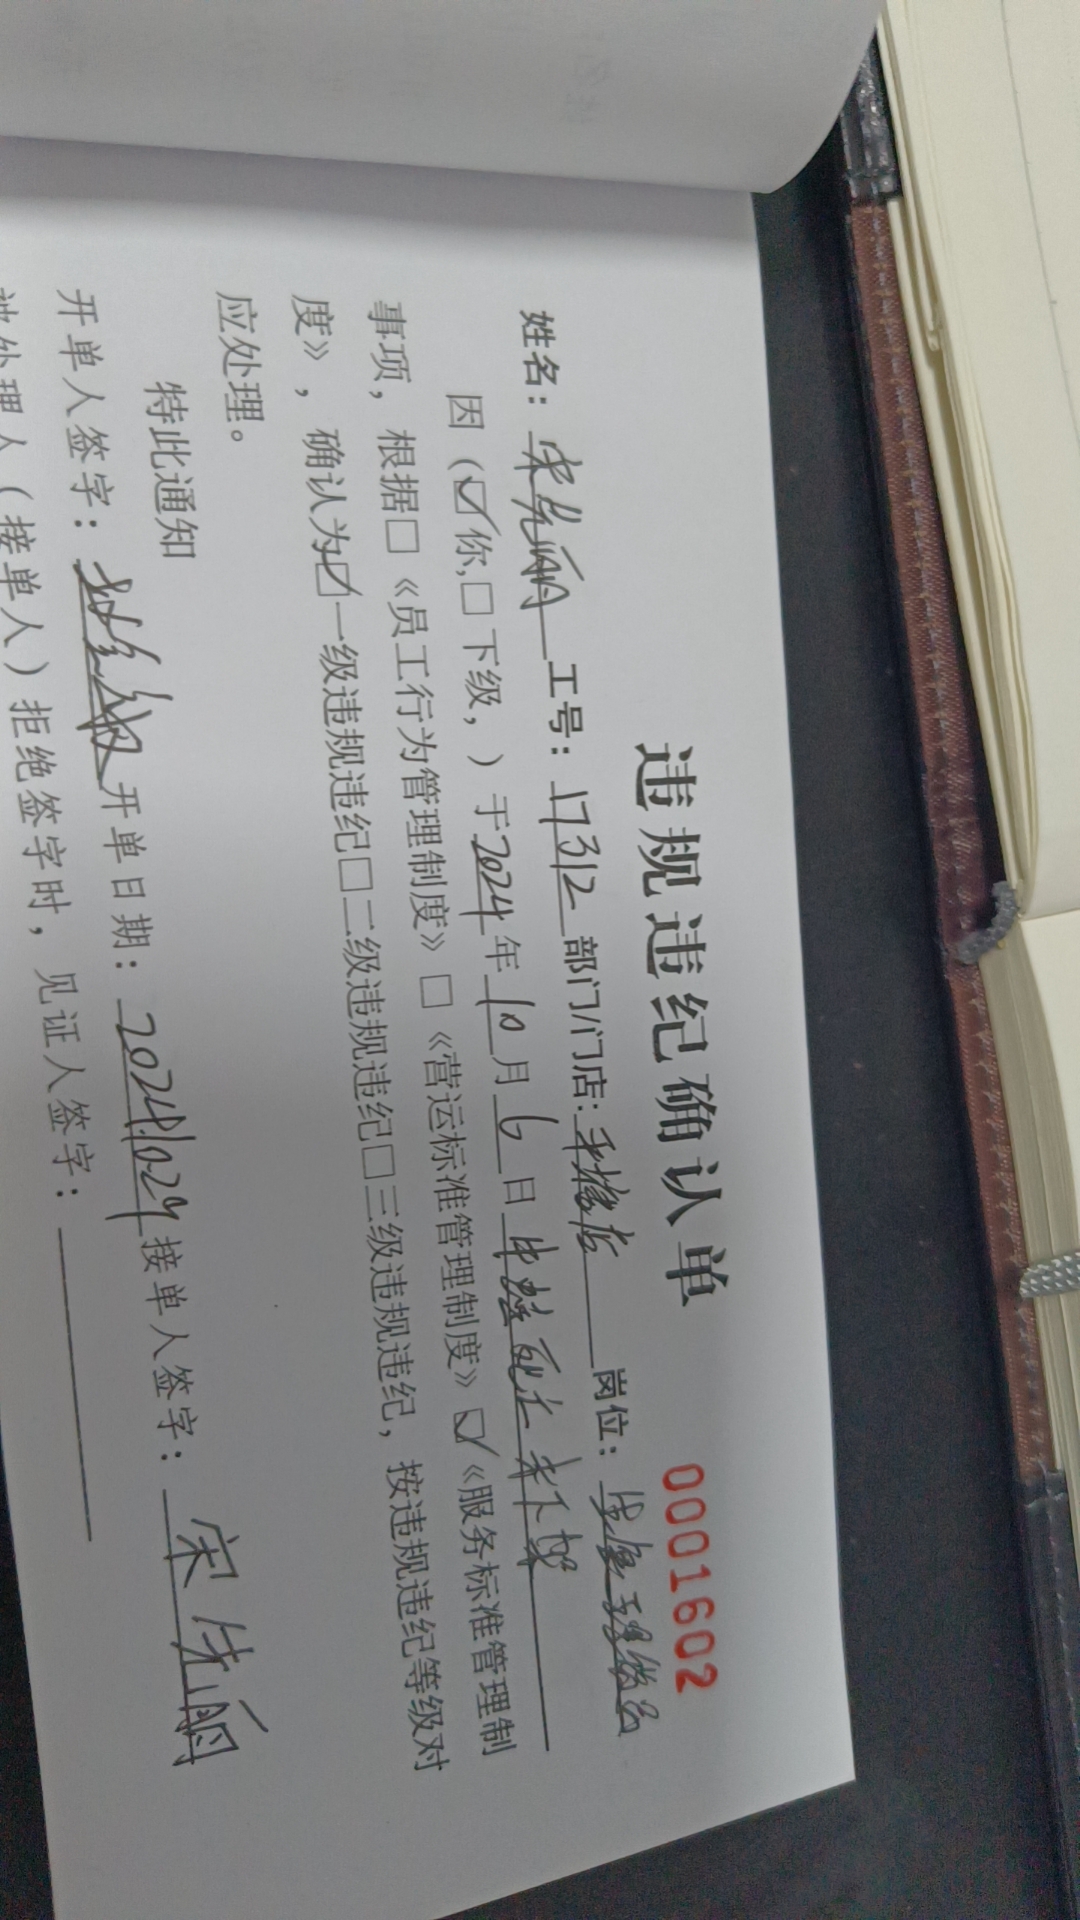 违规违纪确认单 0001602
姓名：宋先丽 工号：17312 部门/门店： 岗位：
因（☑你,☐下级，）于2024年10月6日 未下架
事项，根据☐《员工行为管理制度》☐《营运标准管理制度》☑《服务标准管理制
度》，确认为☑一级违规违纪☐二级违规违纪☐三级违规违纪，按违规违纪等级对
应处理。
特此通知
开单人签字： 开单日期：2024.10.29 接单人签字：宋先丽
被处理人（接单人）拒绝签字时，见证人签字：